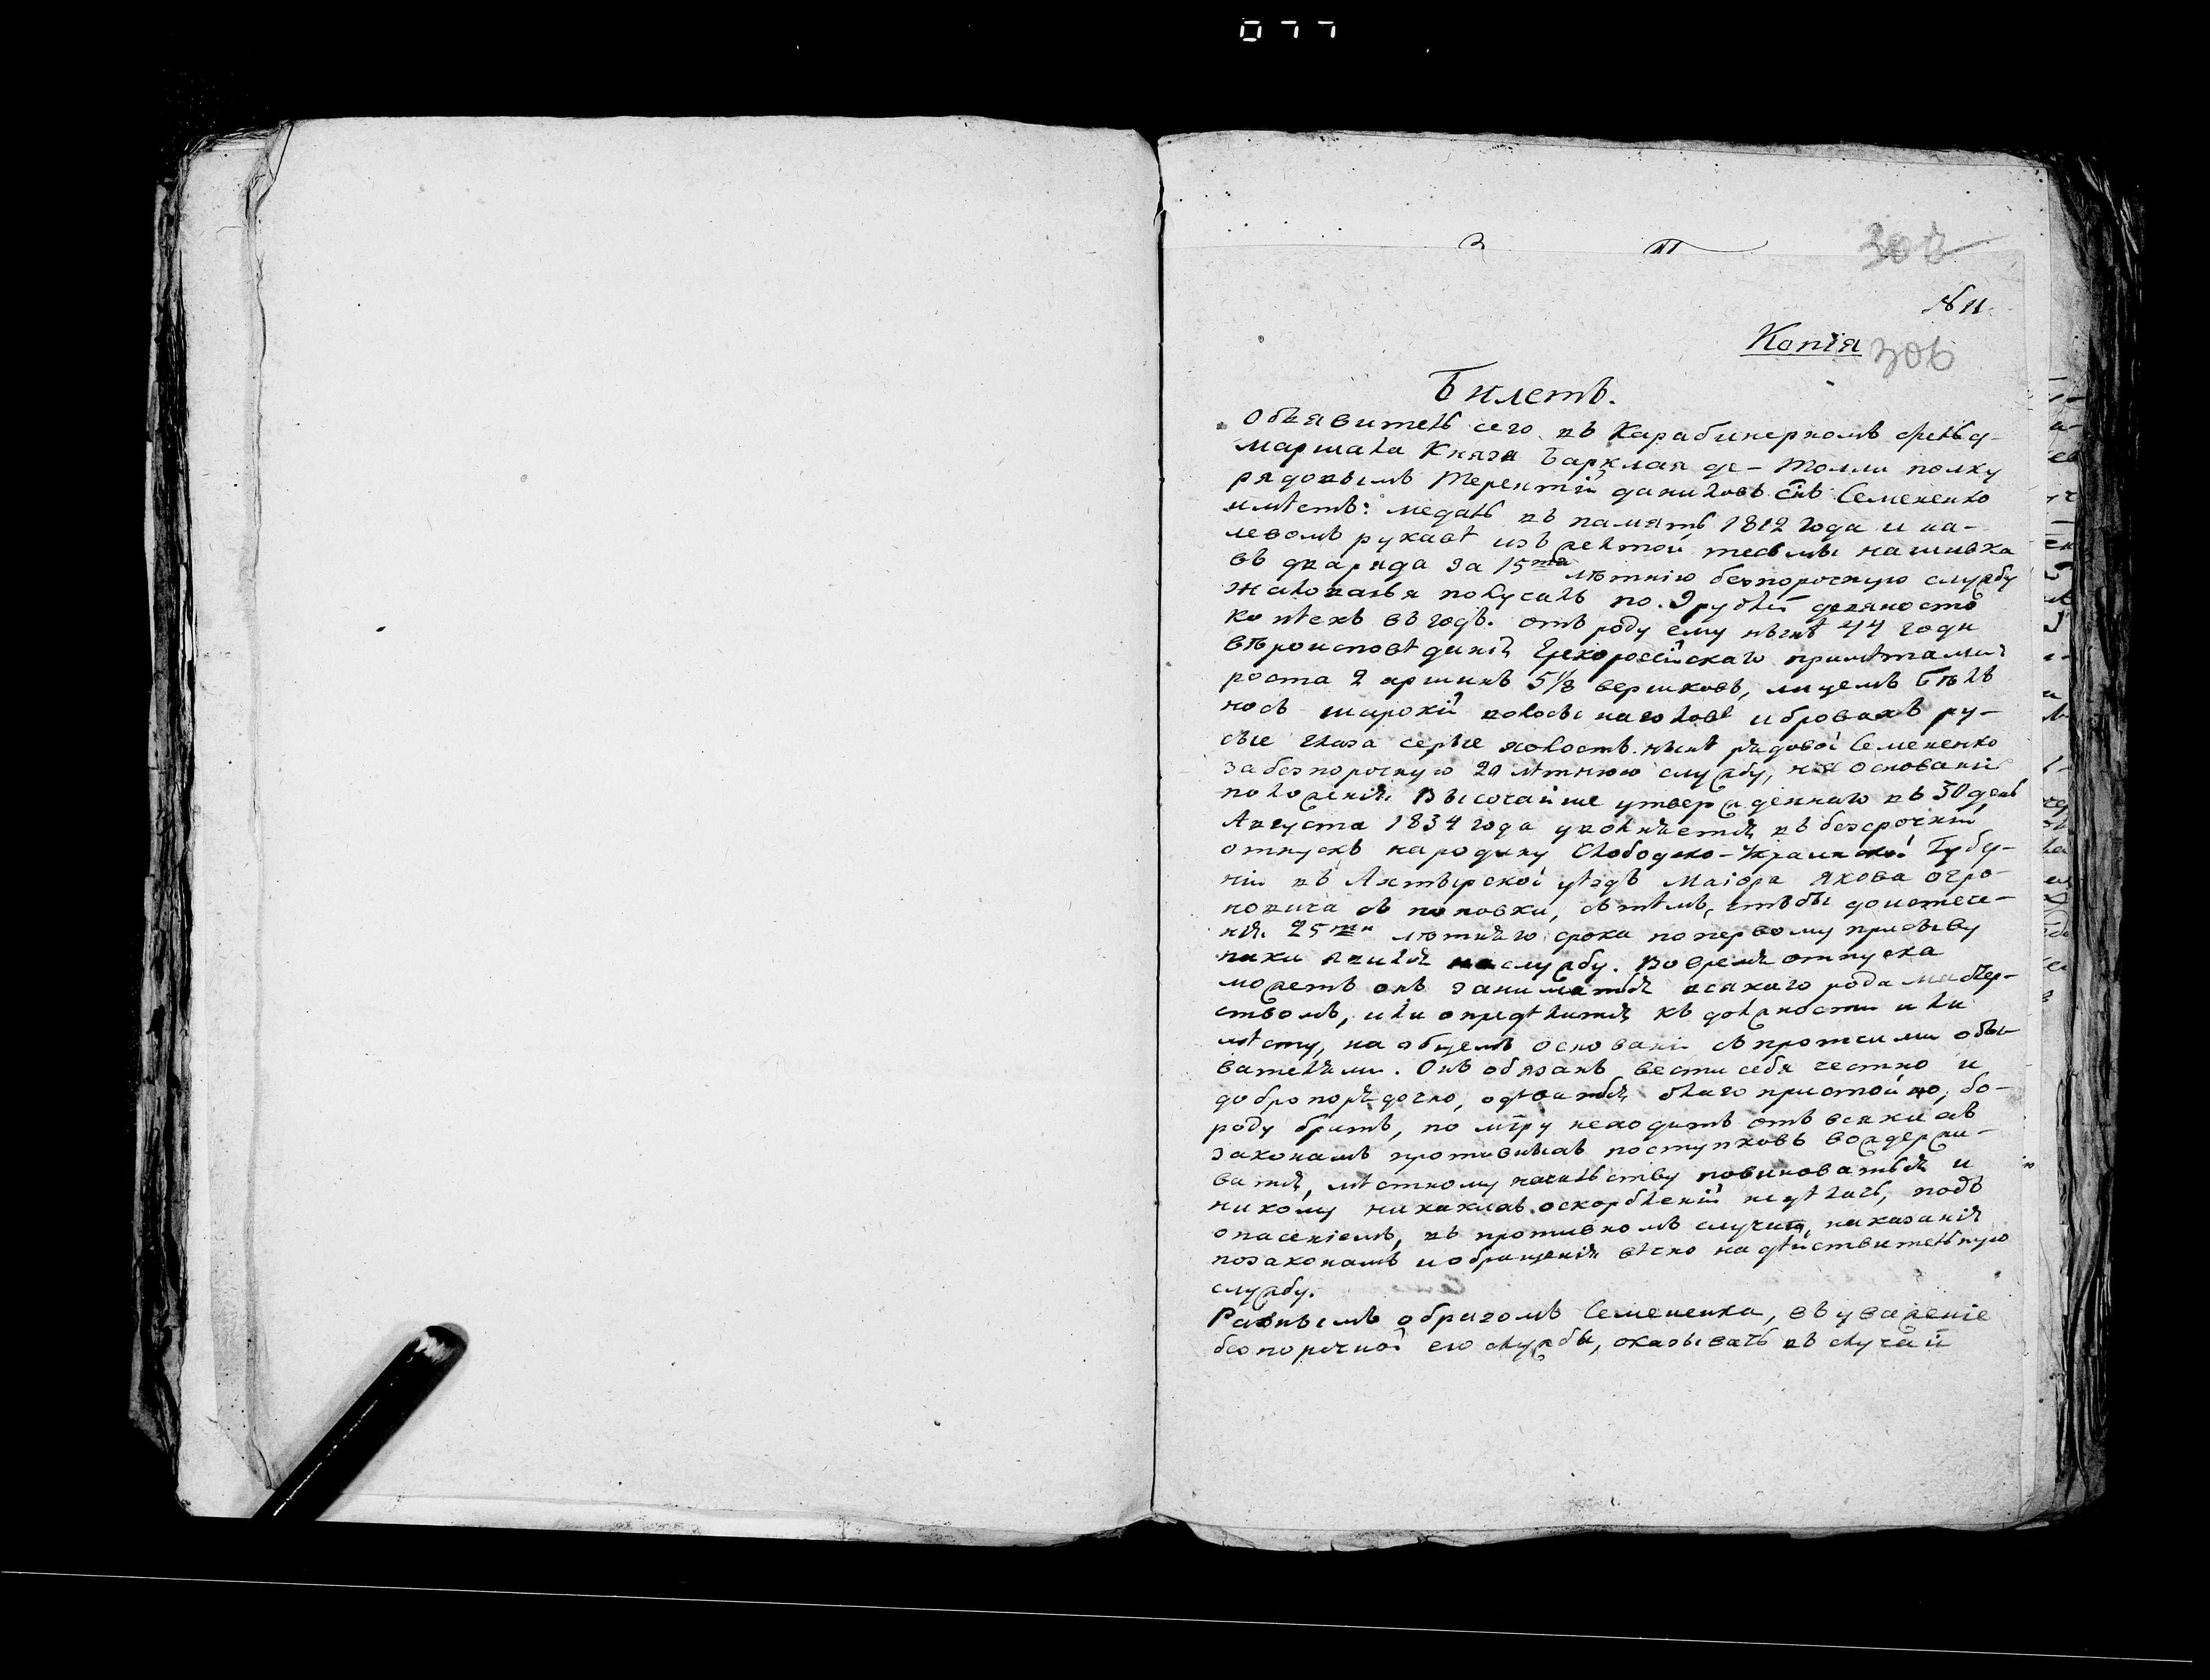 077
302
№ 11.
Копія
306
Билетъ.
Объявитель сего въ Карабинерномъ фельд-
маршала Князя Барклая де-Толли полку
рядовымъ Терентій даниловъ снъ Семененко
имѣетъ: медаль въ память 1812 года и на-
левомъ рукавѣ изъ желтой тесьмы нашивка
въ два ряда за 15ти лѣтнію безпорочную службу
жалованья получалъ по. 9 рублей девяносто
копѣекъ въ годъ. отъ роду ему нынѣ 44 годи
вѣроисповѣданія Грекоросійскаго примѣтами
роста 2 аршинъ 5 1/8 вершковъ, лицемъ бѣлъ
носъ широкій волосы наголовѣ ибровахъ ру-
сые глаза серые холостъ. нынѣ рядовой Семененко
за безпорочную 20 лѣтнюю службу, на основаніи
положенія Высочайше утвержденнаго въ 30 день
Августа 1834 года уволняется въ безсрочній
отпускъ народину Слободско-Украинской Губе-
ніи въ Ахтырской уѣздъ Маіора Якова
съ поповки, стѣмъ, чтобы доистече-
нія 25ти лѣтняго срока поперьвому призыву
паки явился на службу. Вовремя отпуска
можетъ онъ заниматься всякаго рода мастер-
ствомъ, или определится къ должности или
мѣсту, на общемъ основаніи съ протчими обы-
вателями. Онъ обязанъ вести себя честно и
добропорядочно, одѣватся благопристойно, бо-
роду брить, по миру неходить отъ всякихъ
законамъ противныхъ поступковъ воздержи-
ватся, мѣстному начальству повиноваться и
никому никакихъ оскорбленій недѣлать, подъ
опасеніемъ, въ противномъ случаи, наказанія
позаконамъ иобращенія вѣчно надѣйствительную
службу.
Равнымъ образомъ Семененка, въ уваженіе
безпорочной его службы, оказывать въ случаи